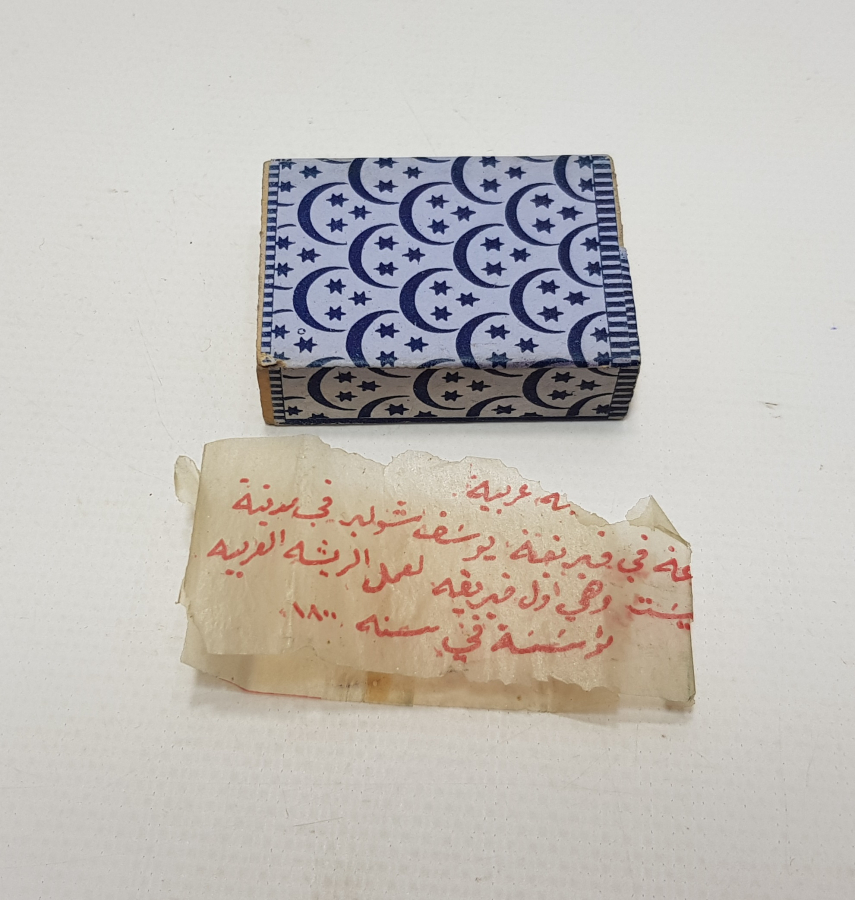 يه عربية
عه في فبريقة يوسف شولر في مدينة
بست وهي اول فبريقه لعمل الريشه العربيه
مؤسسة في سنه ١٨٠٠